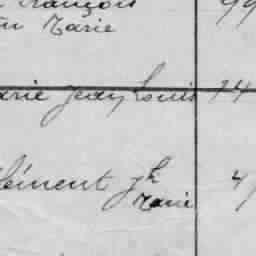 François 99
Marie
Marie Jean Louis 74
Clément Jh 4
Marie